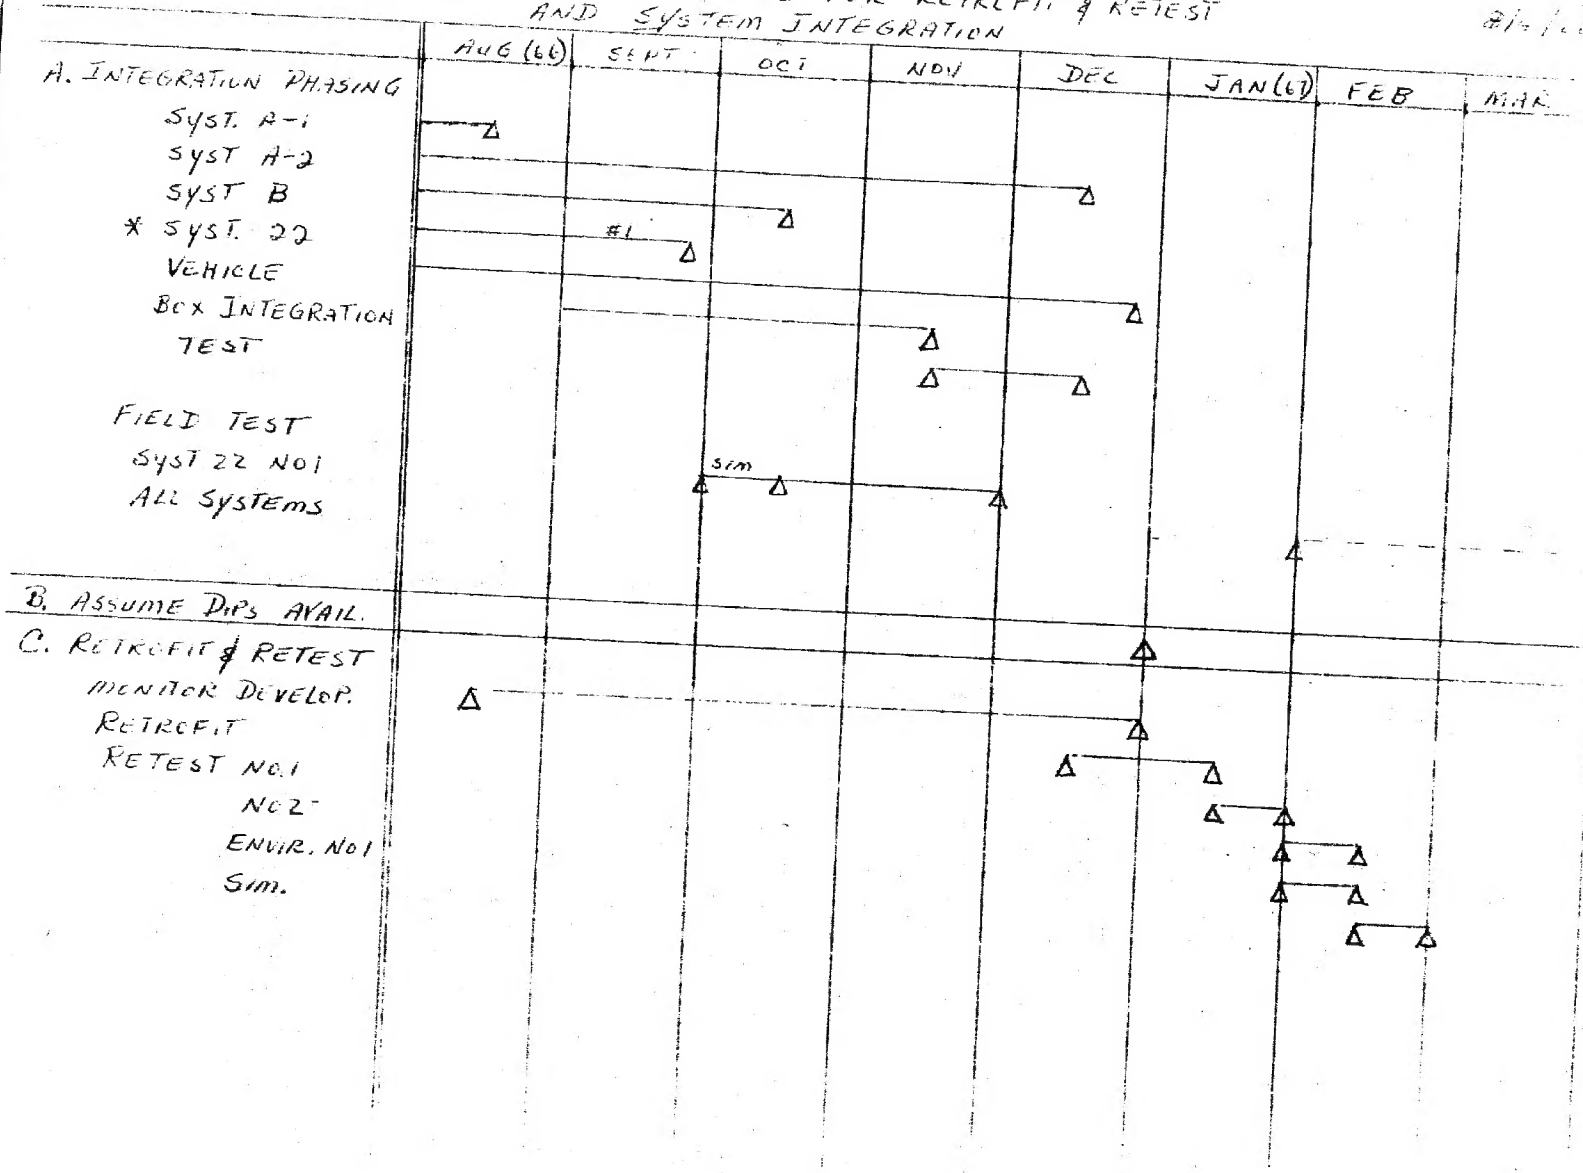 FOR RETROFIT & RETEST
AND SYSTEM INTEGRATION
AUG (66) SEPT OCT NOV DEC JAN (67) FEB MAR
A. INTEGRATION PHASING
SYST. A-1
SYST A-2
SYST B
* SYST. 22 #1
VEHICLE
BOX INTEGRATION
TEST
FIELD TEST
SYST 22 NO1 sim
ALL SYSTEMS
B. ASSUME D.P.S AVAIL.
C. RETROFIT & RETEST
MONITOR DEVELOP.
RETROFIT
RETEST NO.1
NO2
ENVIR. NO1
Sim.